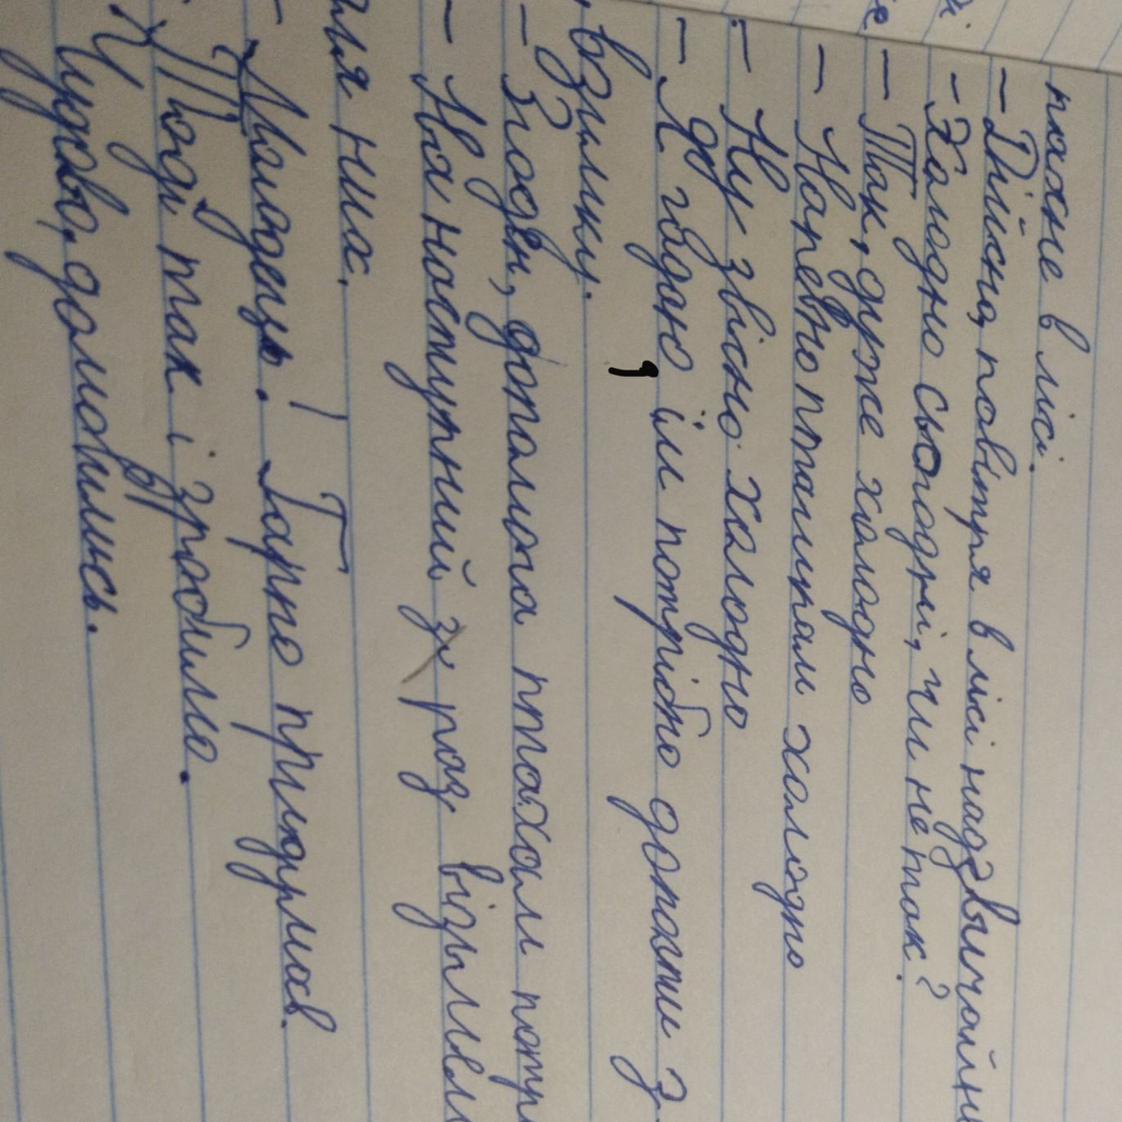 пахне в лісі.
– Дійсно, повітря в лісі надзвичайн
– Холодно сьогодні, чи не так?
– Так, дуже холодно
– Напевно пташкам холодно
– Ну звісно холодно
– Я гадаю, їм потрібно допомогти з
взимку.
– Згоден, допомога птахам потр
– На наступний раз візьмем
для них.
– Молодець! Гарно придумав.
– Тоді так і зробимо.
– Чудово, домовились.